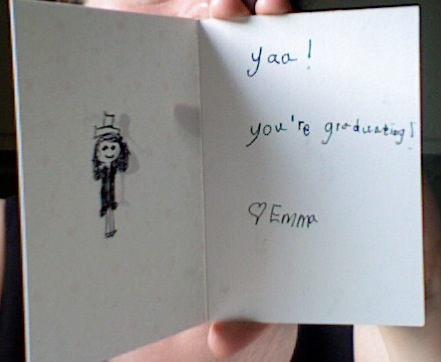 yaa!
you're graduating!
♡ Emma